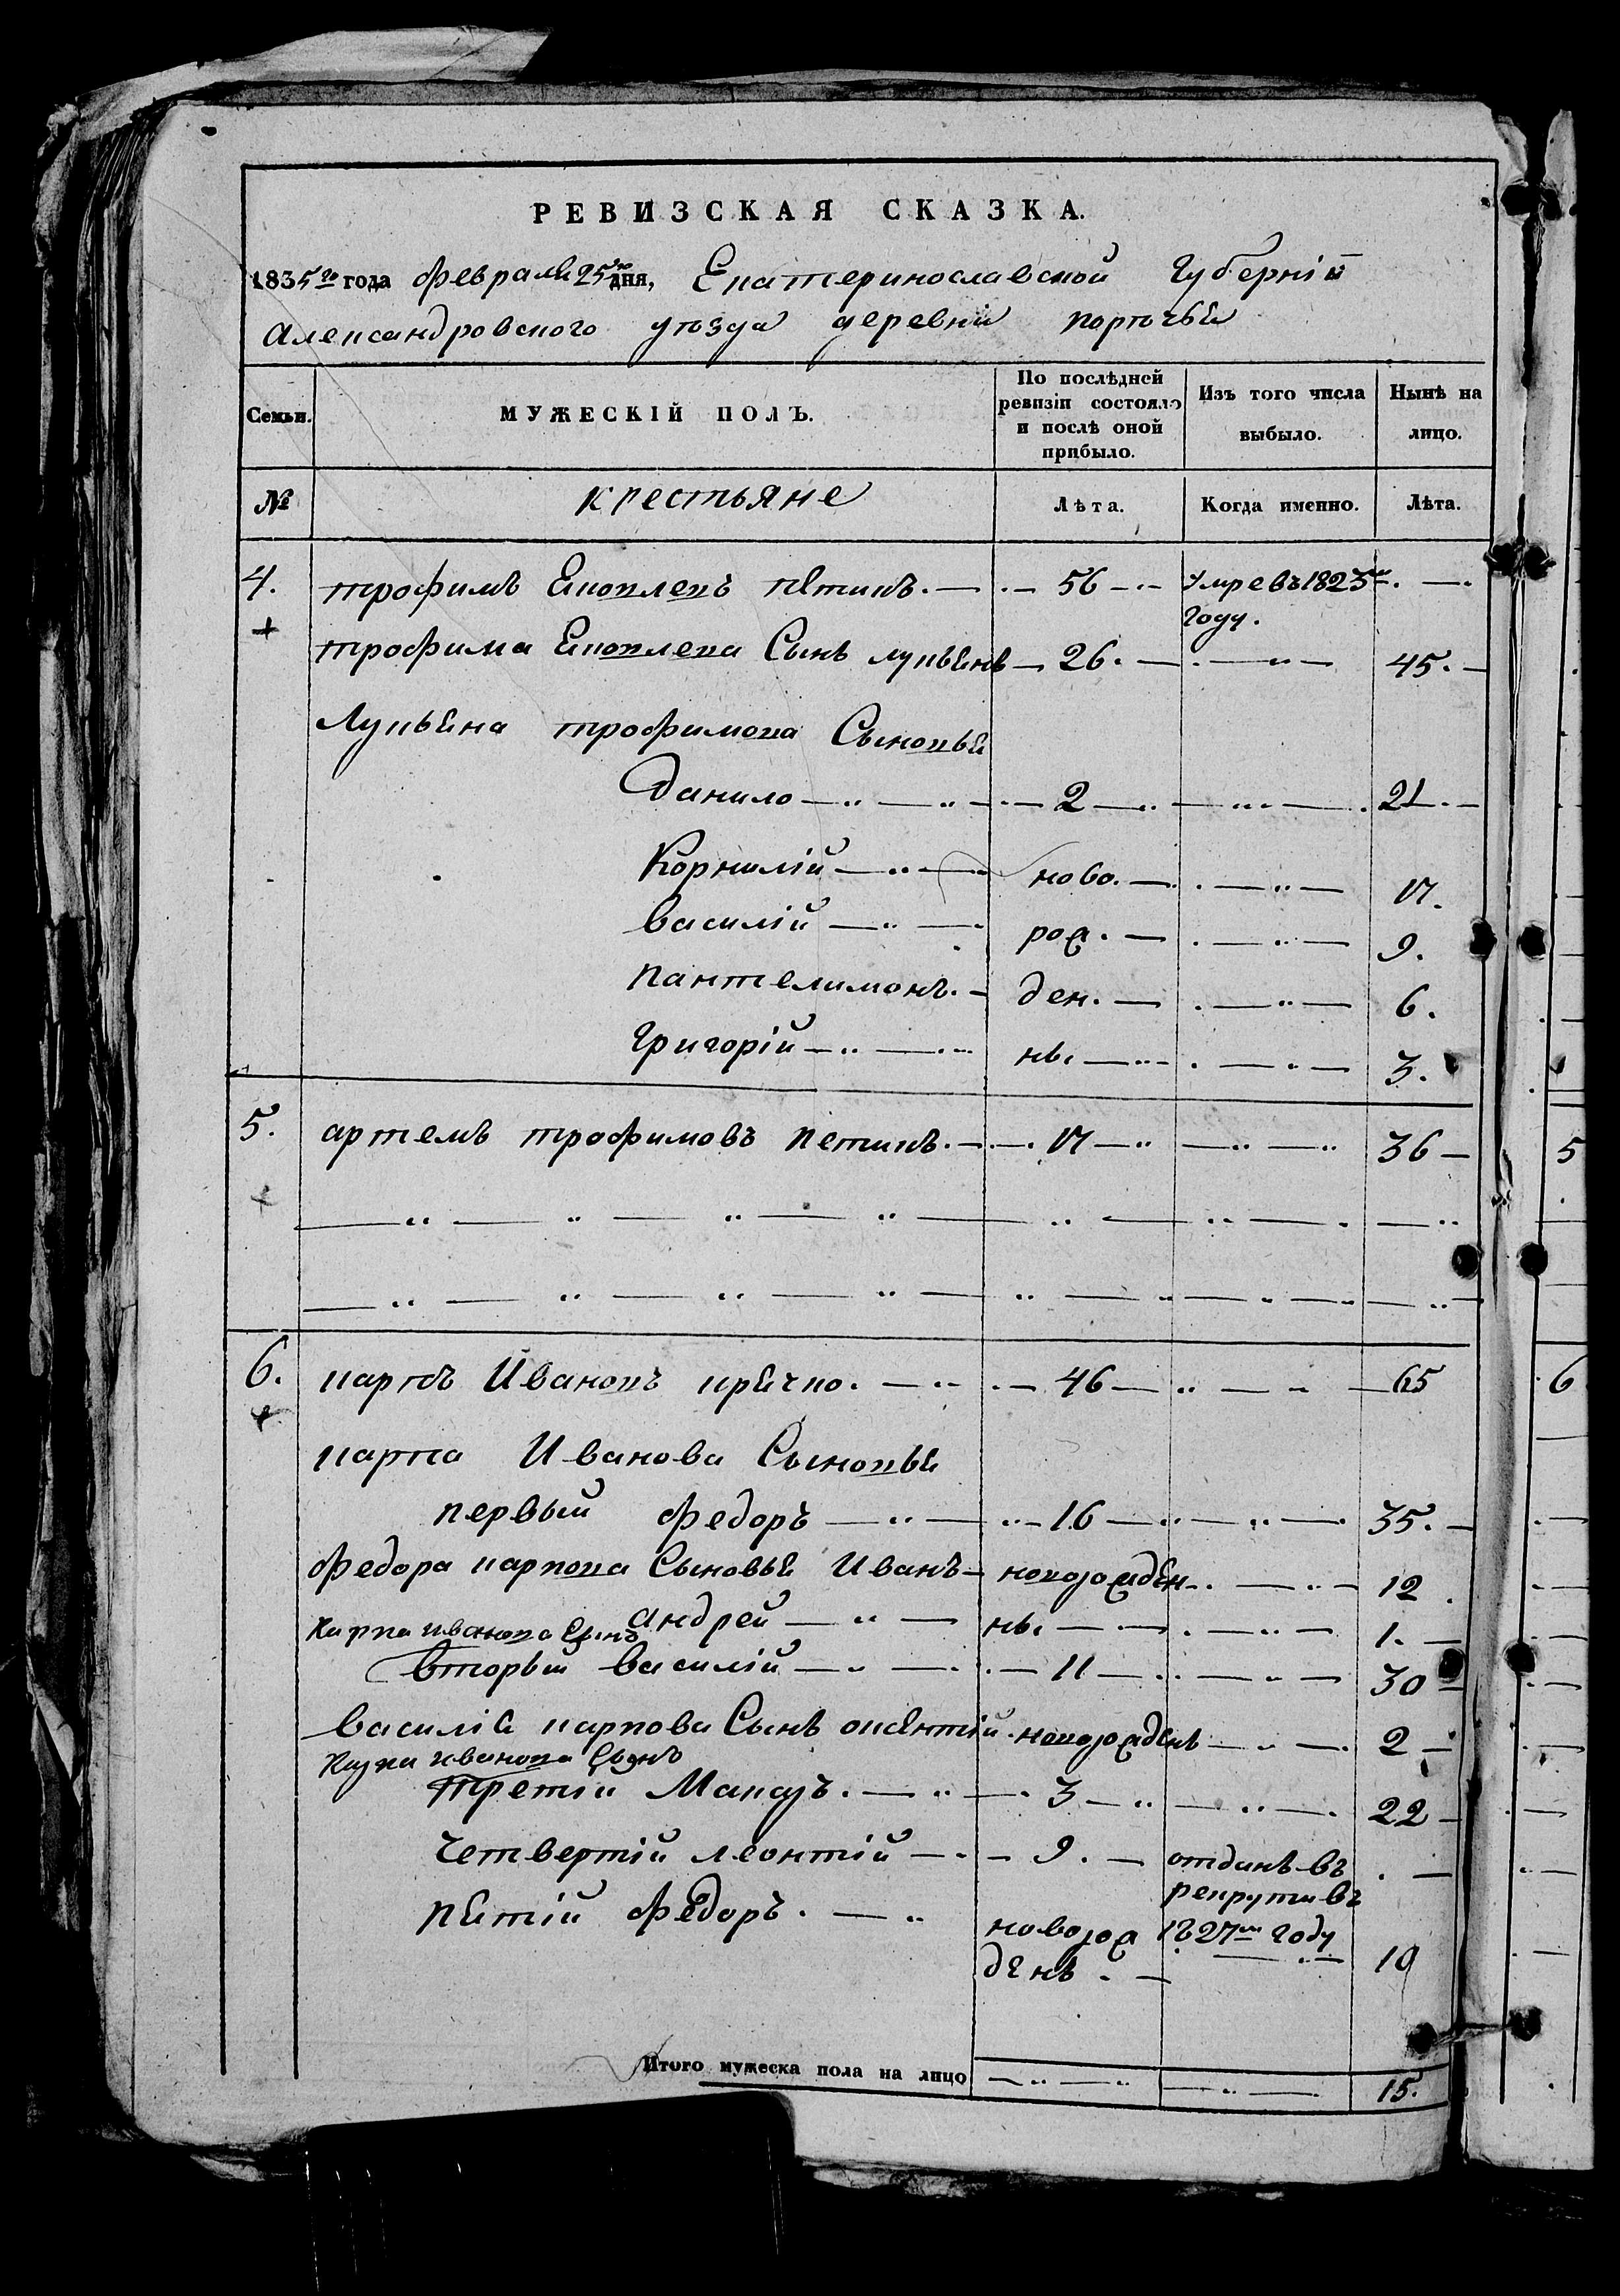 РЕВИЗСКАЯ СКАЗКА.
1835го года февраля 25го дня, Екатеринославской Губерніи
Александровского уѣзда деревни
Семьи. МУЖЕСКІЙ ПОЛЪ. По послѣдней ревизіи состояло и послѣ оной прибыло. Изъ того числа выбыло. Нынѣ на лицо.
№ крестьяне Лѣта. Когда именно. Лѣта.
4. трофимъ Яковлевъ пятикъ. 56 умре въ 1823м
году.
трофима Яковлева Сынъ лукьянъ 26. 45.
Лукьяна трофимова Сыновья
Данило 2 21
Корнилій ново. 17.
василій рож. 9.
пантелимонъ. ден. 6.
Григорій ны 3.
5. артемъ трофимовъ петикъ. 17 36
6. карпъ Ивановъ 46 65
карпа Иванова Сыновья
первый федоръ 16 35.
федора карпова Сыновья Иванъ новорожден 12
андрей ны 1.
Карпа иванова Сынъ
вторый василій 11 30
василія карпова Сынъ новорожденъ 2
Карпа иванова Сынъ
третій Макаръ. 3 22
четвертій леонтій 9. отданъ въ
рекруты въ
1827м году
пятій Федоръ. новорож
денъ. 10
Итого мужеска пола на лицо 15.
5
6